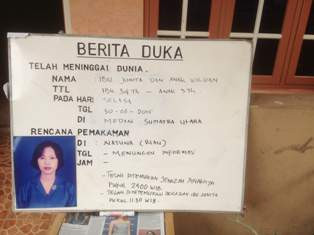 BERITA DUKA
TELAH MENINGGAL DUNIA.
NAMA : IBU JUNITA DAN ANAK
TTL : IBU 34 TH – ANAK 5 TH
PADA HARI : SELASA
TGL : 30-06-2015
DI : MEDAN SUMATRA UTARA
RENCANA PEMAKAMAN
DI : NATUNA (RIAU)
TGL – MENUNGGU INFORMASI
JAM –
- TELAH DITEMUKAN JENAZAH
PUKUL 24.00 WIB.
- TELAH DITEMUKAN JENAZAH IBU JUNITA
PUKUL 11.30 WIB.